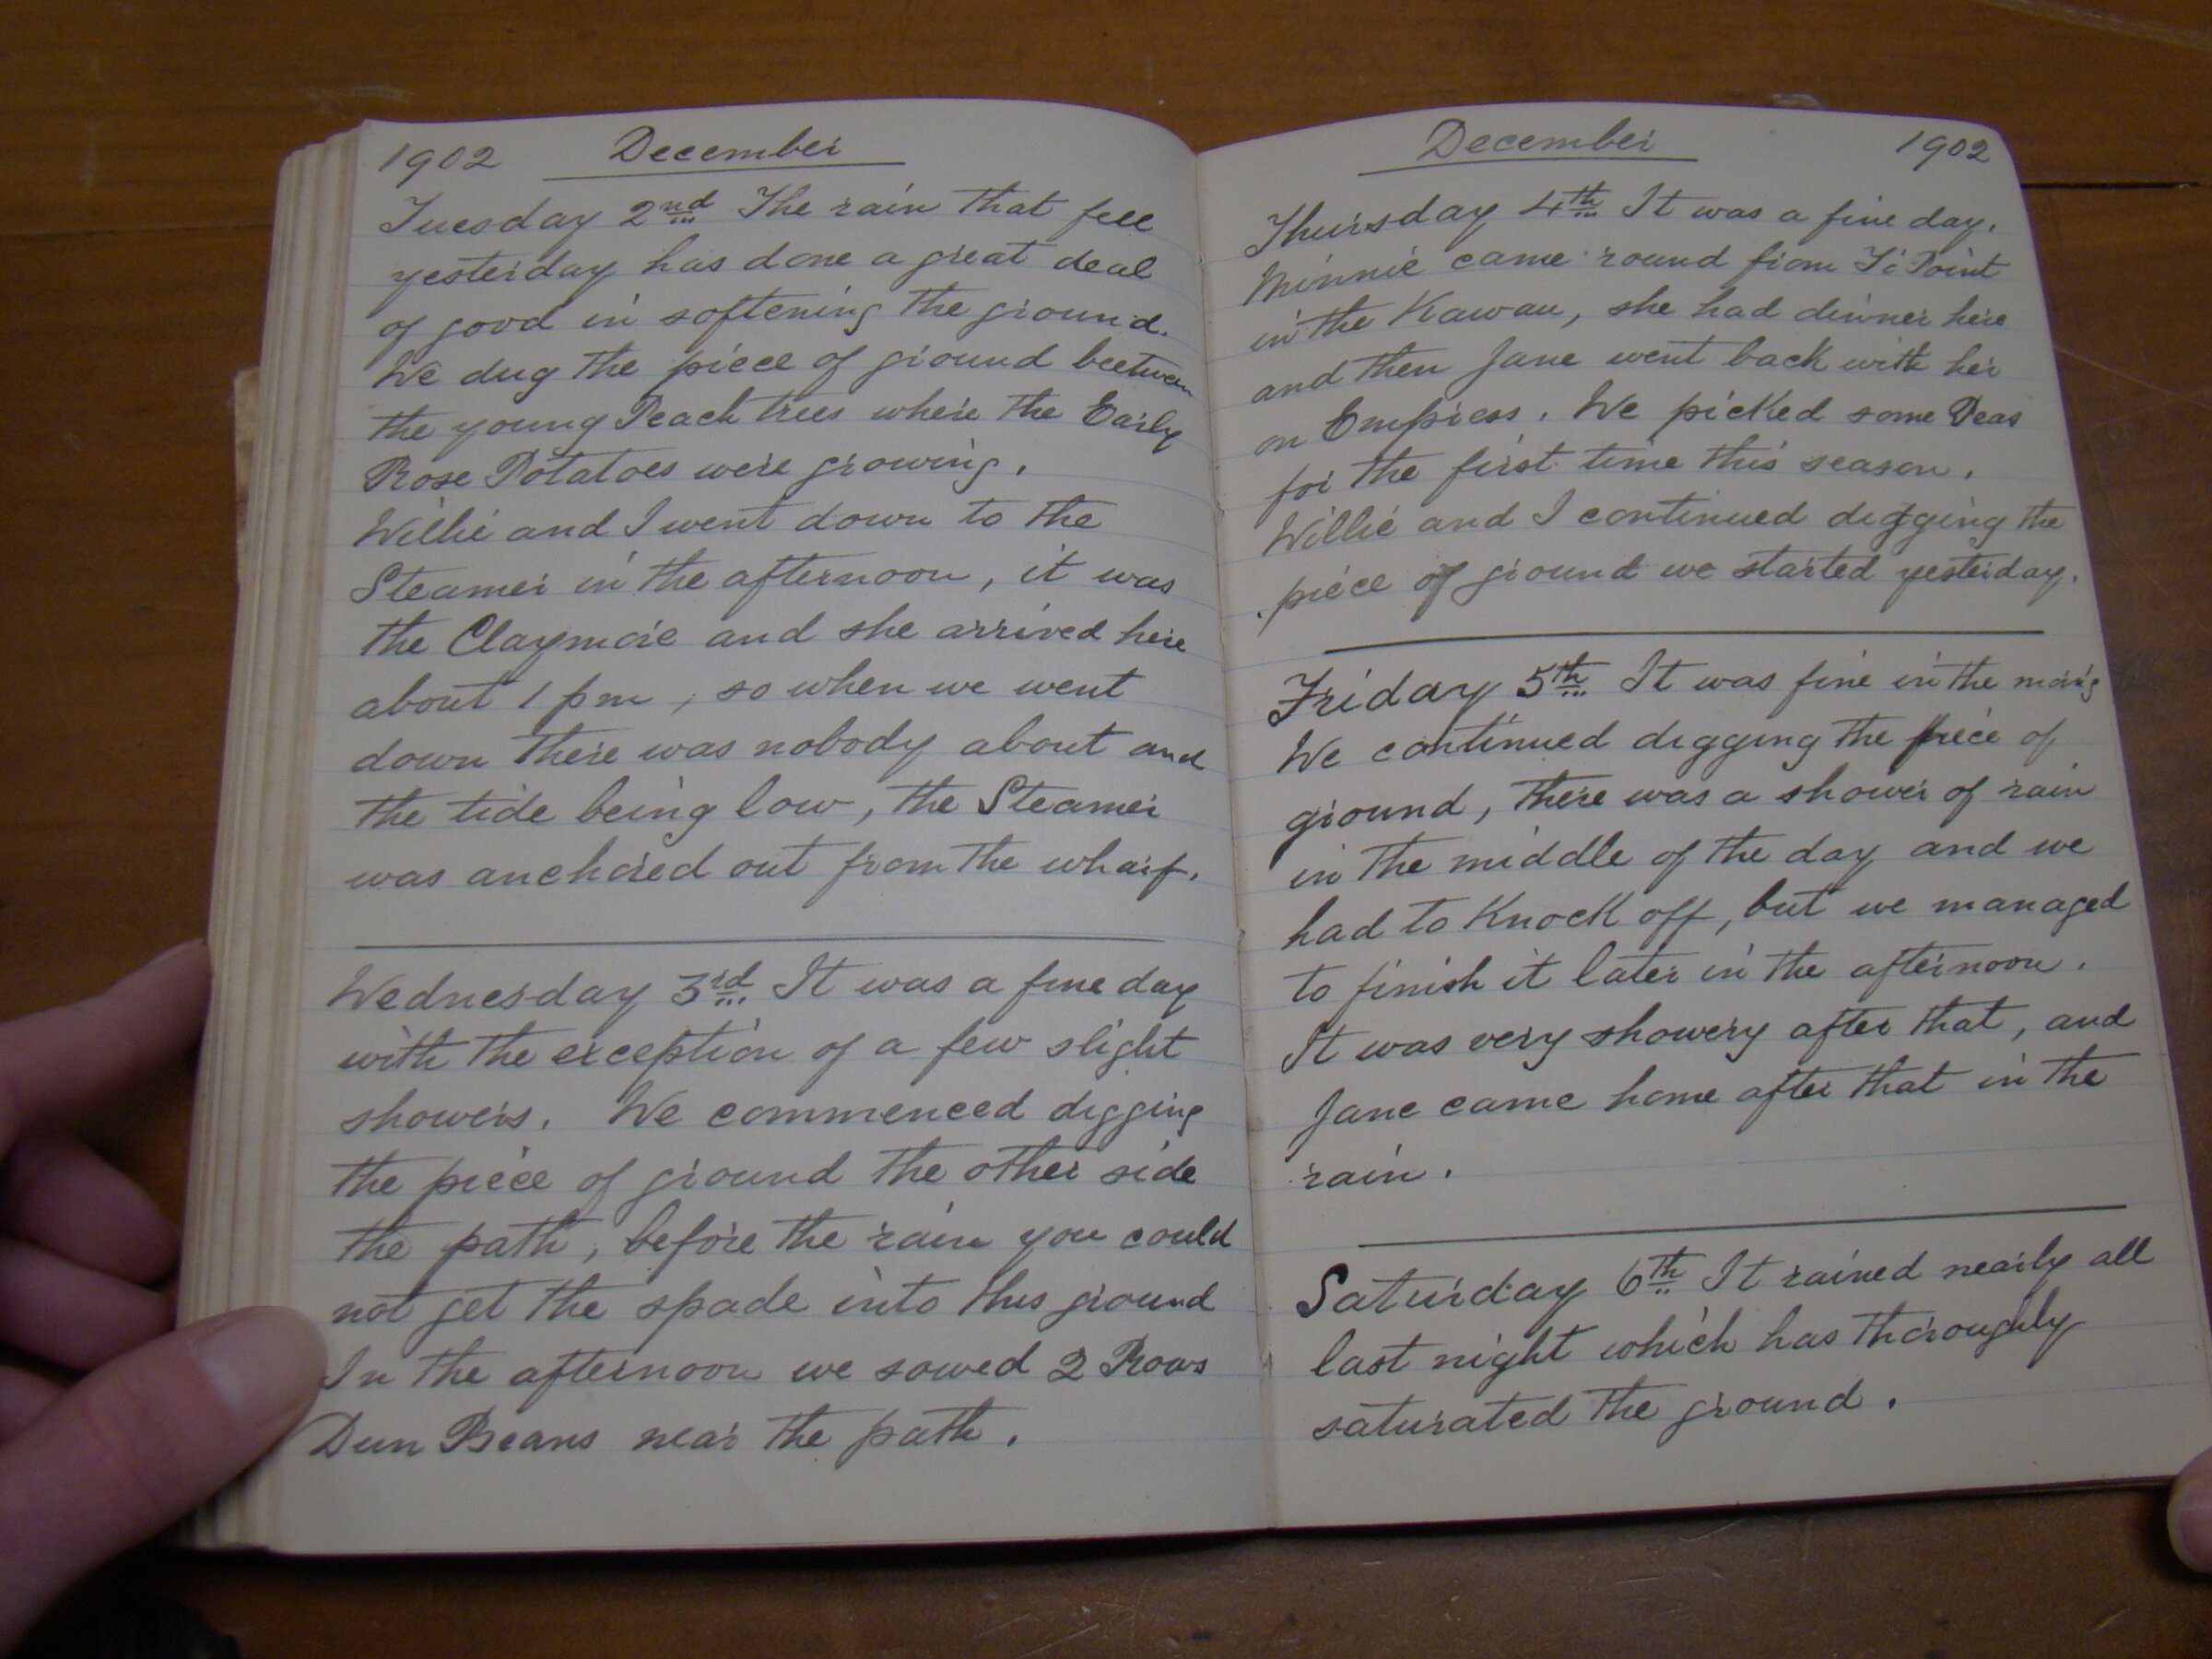 1902 December
Tuesday 2nd The rain that fell
yesterday has done a great deal
of good in softening the ground.
We dug the piece of ground beetween
the young Peach trees where the Early
Rose Potatoes were growing.
Willie and I went down to the
Steamer in the afternoon, it was
the Claymore and she arrived here
about 1 pm, so when we went
down there was nobody about and
the tide being low, the Steamer
was anchored out from the wharf.
Wednesday 3rd It was a fine day
with the exception of a few slight
showers. We commenced digging
the piece of ground the other side
the path, before the rain you could
not get the spade into this ground
In the afternoon we sowed 2 Rows
Dun Beans near the path.
December 1902
Thursday 4th It was a fine day.
Minnie came round from Ti Point
in the Kawau, she had dinner here
and then Jane went back with her
on Empress. We picked some Peas
for the first time this season.
Willie and I continued digging the
piece of ground we started yesterday.
Friday 5th It was fine in the morng
We continued digging the piece of
ground, there was a shower of rain
in the middle of the day and we
had to knock off, but we managed
to finish it later in the afternoon.
It was very showery after that, and
Jane came home after that in the
rain.
Saturday 6th It rained nearly all
last night which has thoroughly
saturated the ground.